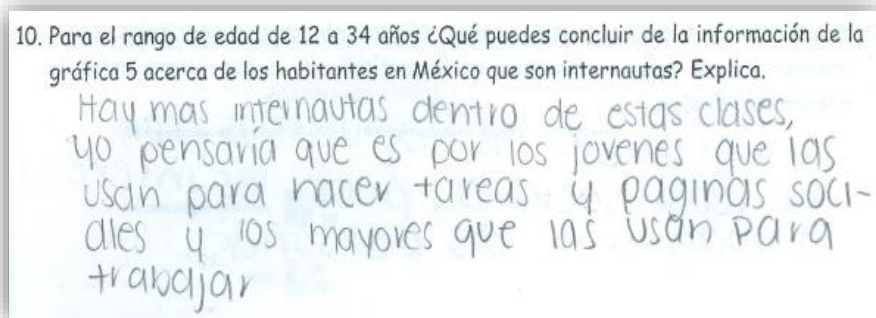 10. Para el rango de edad de 12 a 34 años ¿Qué puedes concluir de la información de la
gráfica 5 acerca de los habitantes en México que son internautas? Explica.
Hay mas internautas dentro de estas clases,
yo pensaría que es por los jovenes que las
usan para hacer tareas y paginas soci-
ales y los mayores que las usan para
trabajar